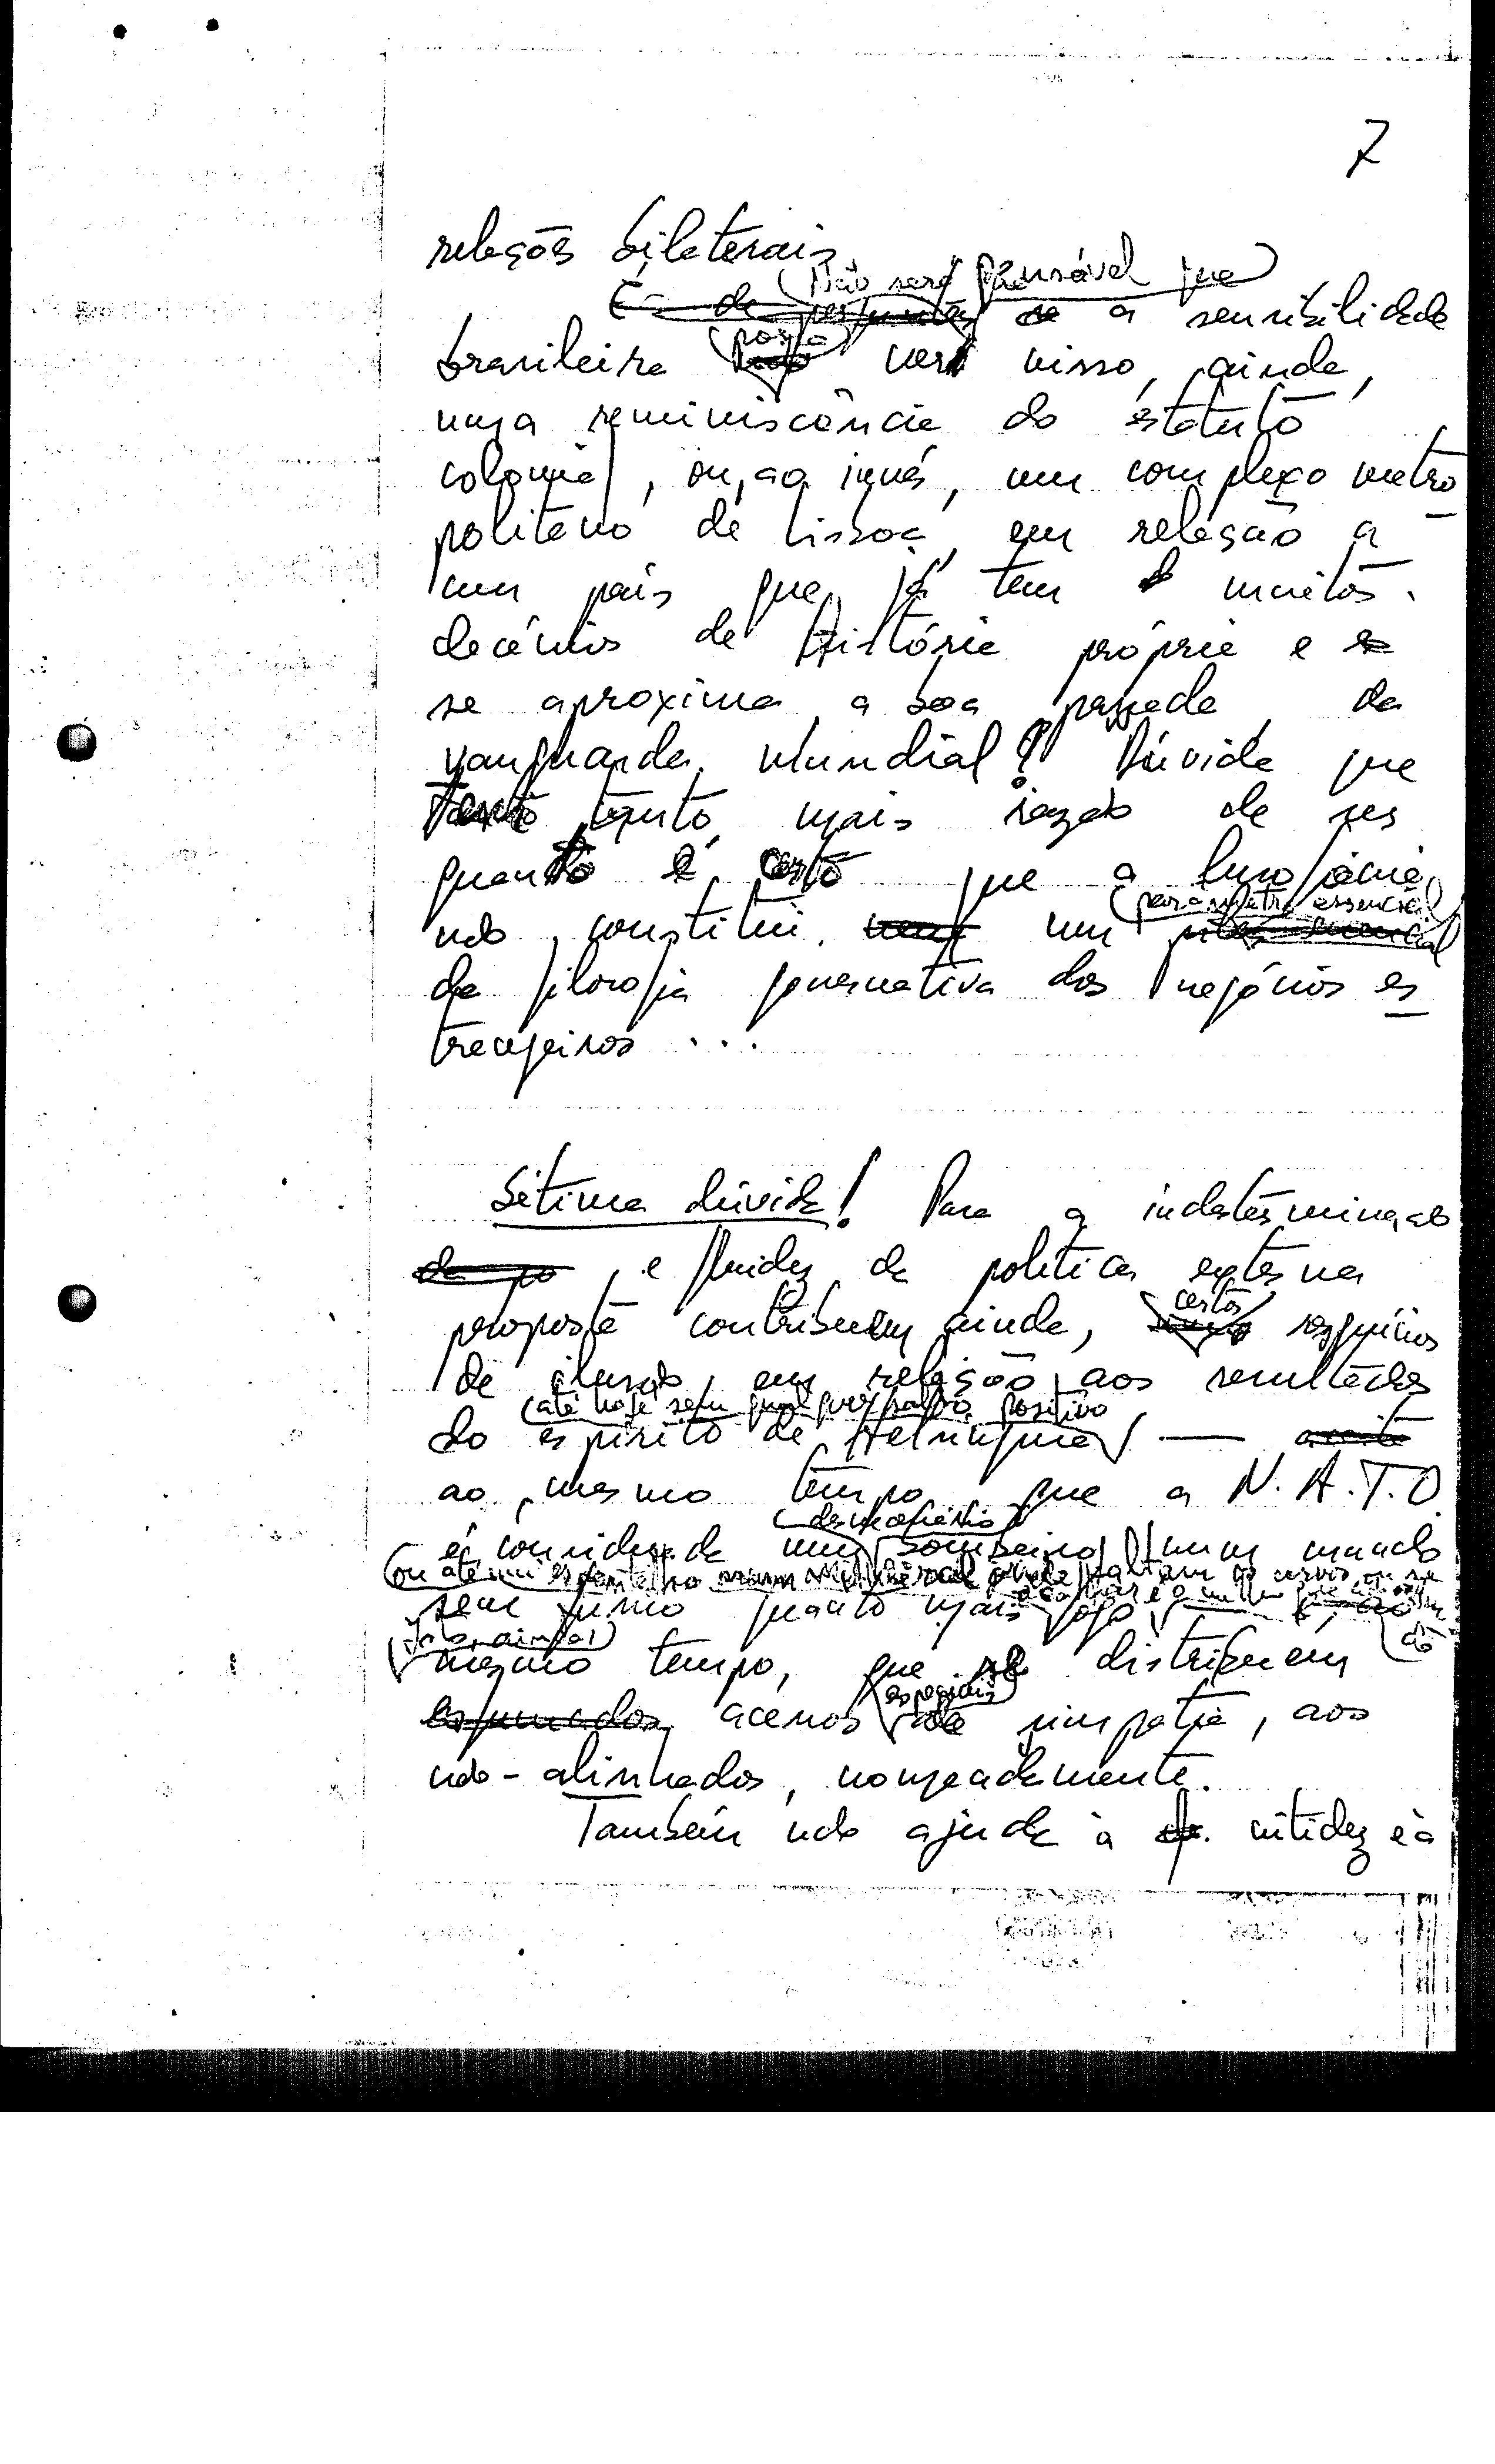 7
relações bilaterais.
É de perguntar se (Não será pensável que) a sensibilidade
brasileira (possa) ver nisso, ainda,
uma reminiscência do estatuto
colonial, ou, ao invés, um complexo metro
politano de Lisboa, em relação a
um país que já tem muitos
decénios de História própria e
se aproxima, a boa passada, da
vanguarda mundial? Dúvida que
tanto mais razão de ser
quanto é certo que a lusofonia
não constitui um (parâmetro essencial)
da filosofia governativa dos negócios es
trangeiros ...
Sétima dúvida! Para a indeterminação
e fluidez da política externa
proposta contribuem ainda, certos resquícios
de ilusão, em relação aos resultados
do espírito de Helsínquia (até hoje sem qualquer saldo positivo) —
ao mesmo tempo que a N.A.T.O.
é considerada um sombreiro (desnecessário) num mundo
(ou até um espantalho onde faltam os corvos, ou se
sem fumo quanto mais fogo
(Isto, ainda, ao
mesmo tempo, que se distribuem
acenos (especiais) de simpatia, aos
não-alinhados, nomeadamente.
Também não ajuda à nitidez e à